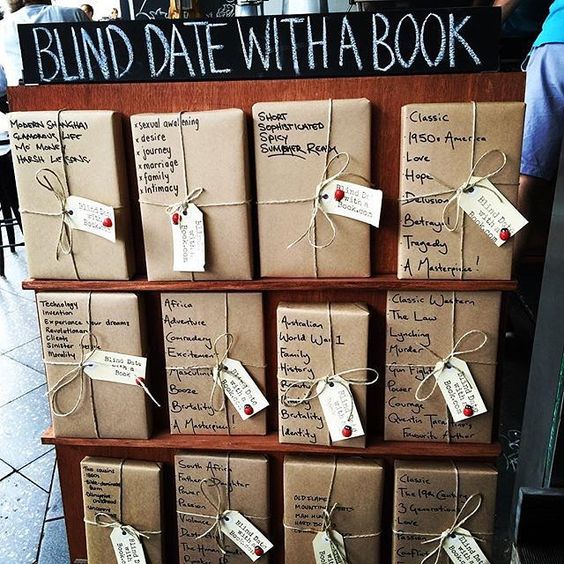 BLIND DATE WITH A BOOK
MODERN SHANGHAI
GLAMOROUS LIFE
MO MONEY
HARSH LESSONS
Blind Date
with a
Book.com
x sexual awakening
x desire
x journey
x marriage
x family
x intimacy
Blind Date
with a
Book.com
SHORT
SOPHISTICATED
SPICY
SUMMER READ
Blind Date
with a
Book.com
Classic
1950s America
Love
Hope
Delusion
Betrayal
Tragedy
A Masterpiece!
Blind Date
with a
Book.com
Technology
Invention
Experience your dreams
Revolutionary
Clients
Sinister
Morality
Blind Date
with a
Book
Africa
Adventure
Comradery
Excitement
Masculinity
Booze
Brutality
A Masterpiece!
Blind Date
with a
Book.com
Australian
World War 1
Family
History
Brutality
Identity
Blind Date
with a
Book
Classic Western
The Law
Lynching
Murder
Gun Fight
Power
Courage
Quentin
Favourite Author
Blind Date
with a
Book.com
Two cousins
South Africa
Father Daughter
Power
Passion
Violence
Blind Date
with a
Book.com
OLD FLAME
Blind Date
with a
Book.com
Classic
The 19th Century
3 Generations
Love
Passion
Blind Date
with a
Book.com